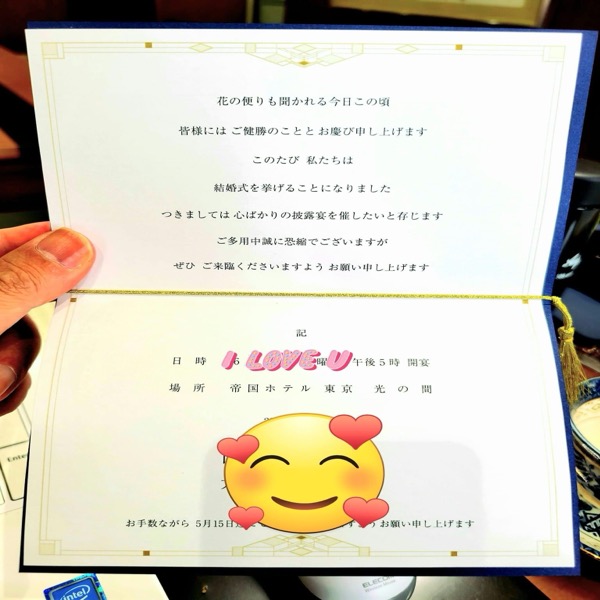 花の便りも聞かれる今日この頃
皆様には ご健勝のこととお慶び申し上げます
このたび 私たちは
結婚式を挙げることになりました
つきましては 心ばかりの披露宴を催したいと存じます
ご多用中誠に恐縮でございますが
ぜひ ご来臨くださいますよう お願い申し上げます
記
日 時 6 I LOVE U 曜 午後5時 開宴
場 所 帝国ホテル 東京 光の間
お手数ながら 5月15日 お願い申し上げます
Enter
intel
ELECOM